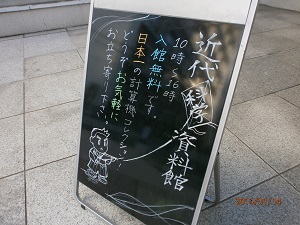 近代科学資料館
10時〜16時
入館無料です。
日本一の計算機コレクション!
どうぞお気軽に
お立ち寄り下さい。